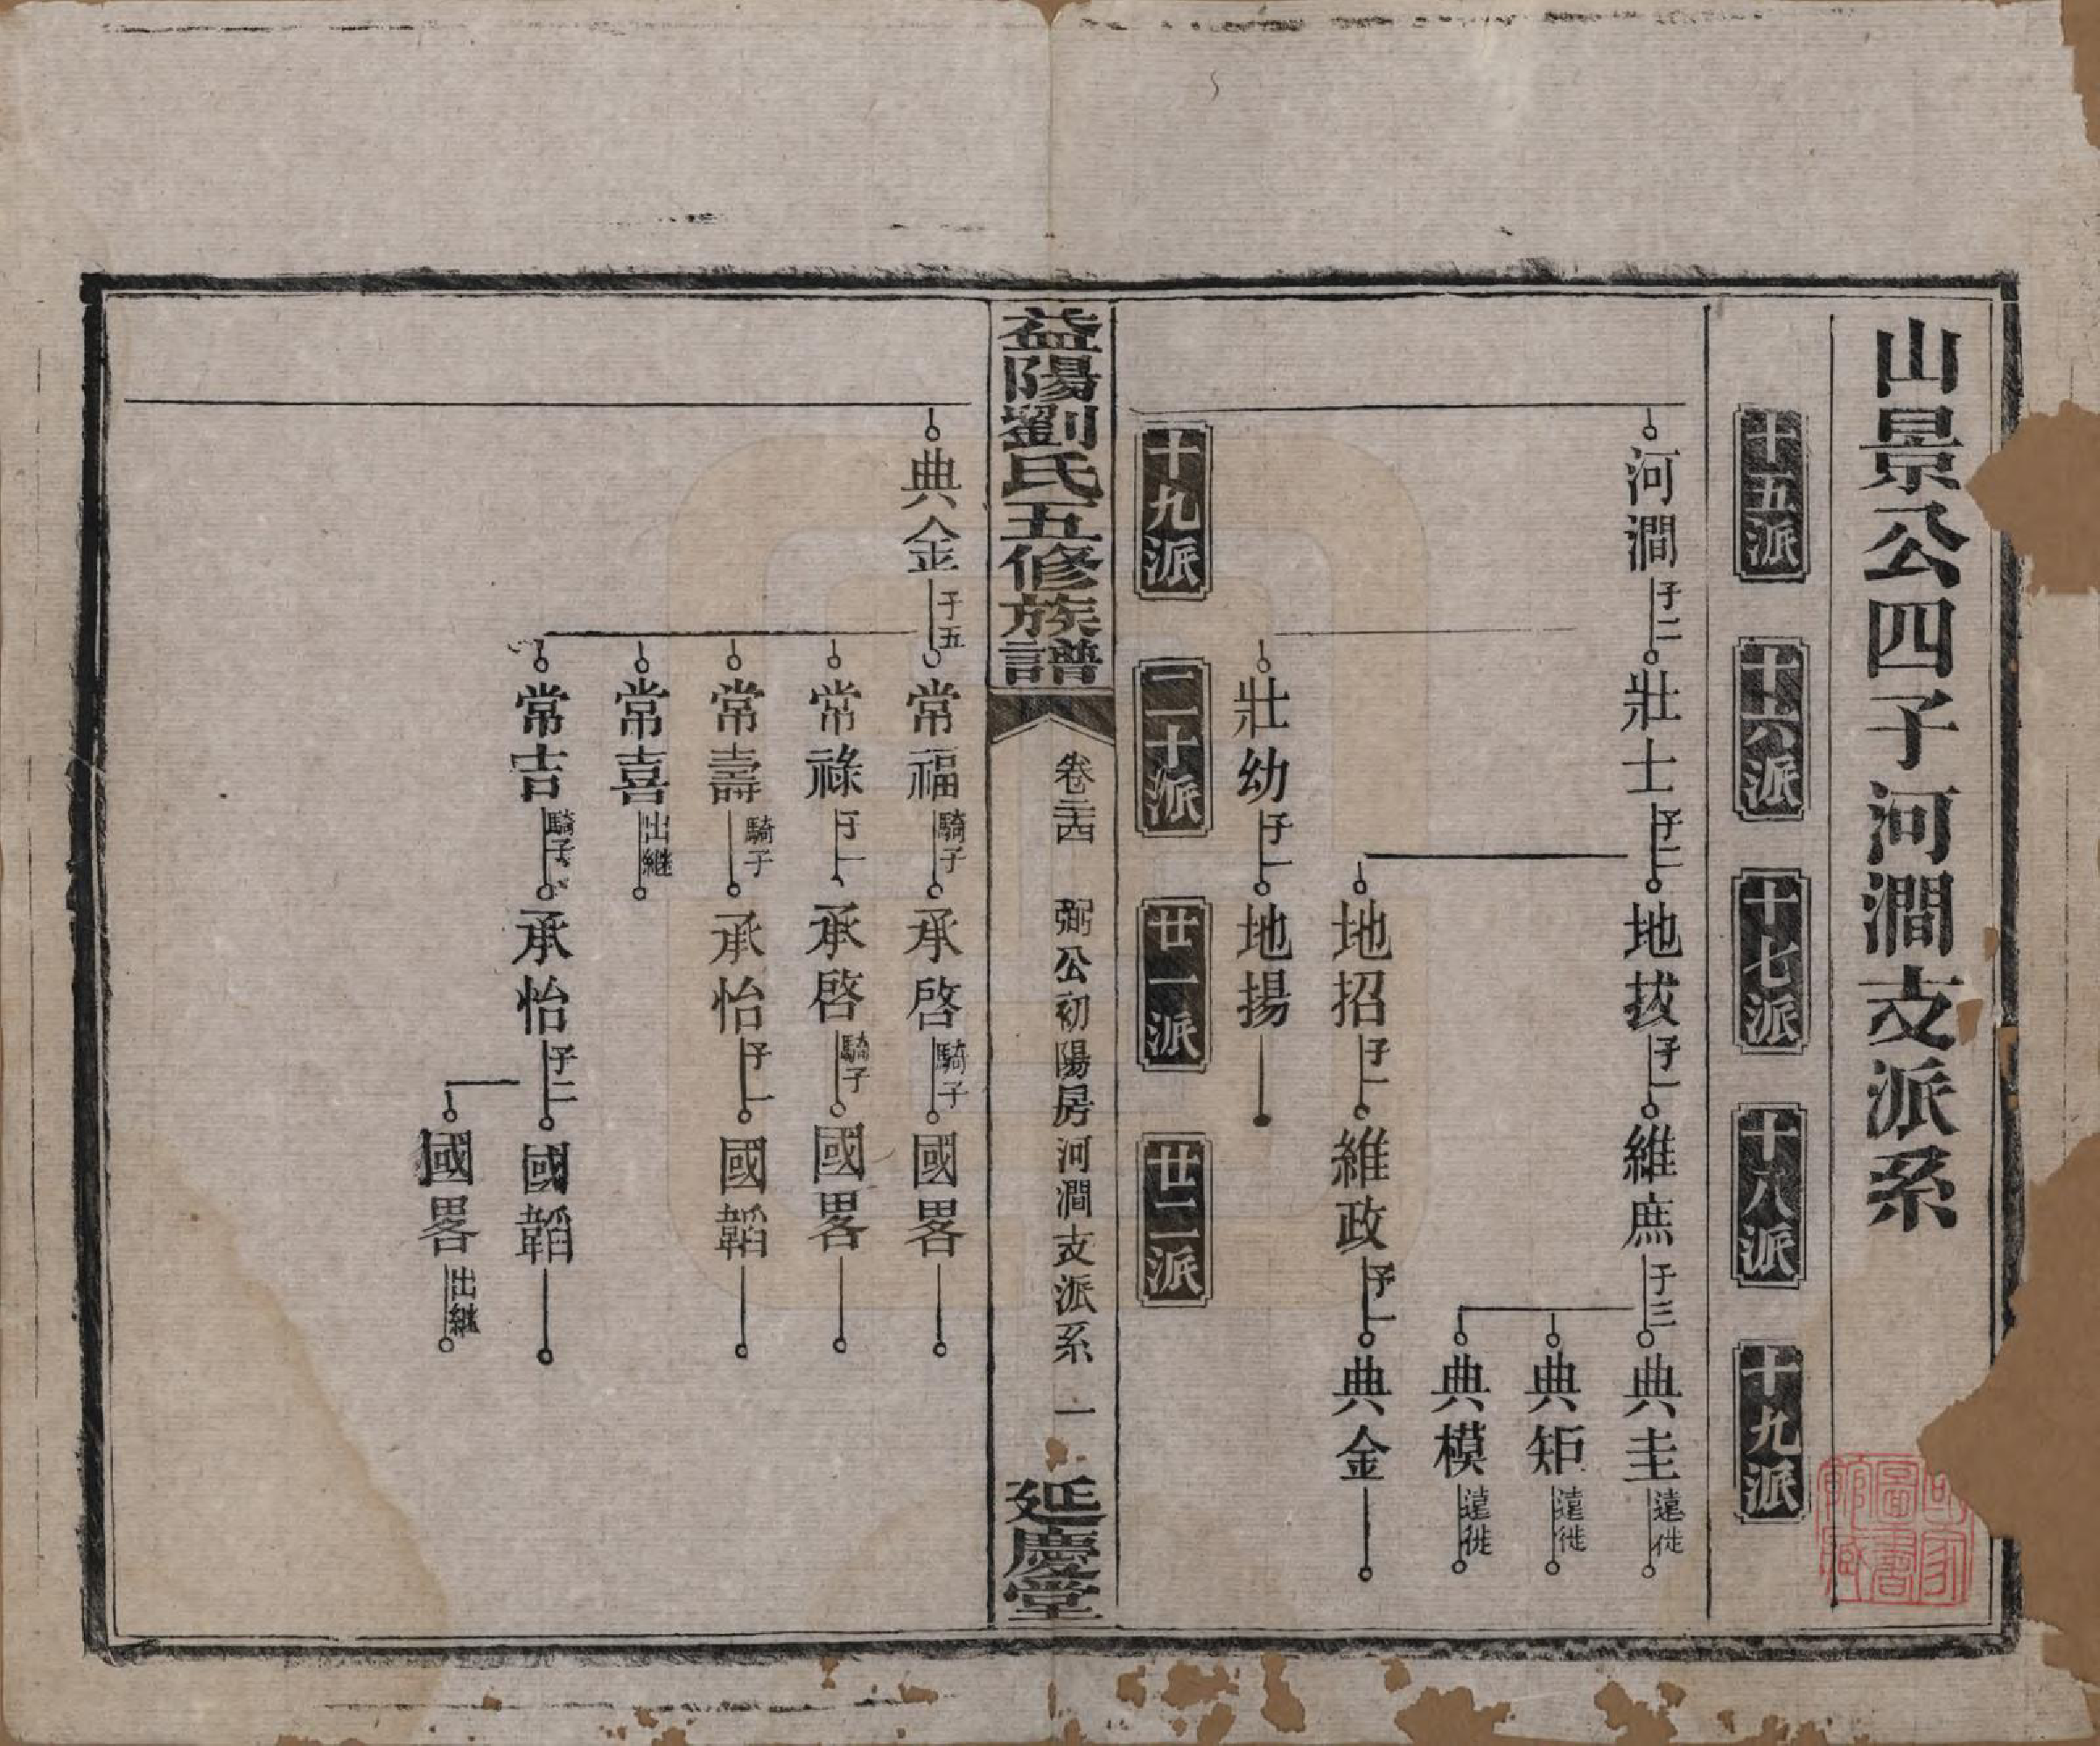 山景公四子河澗支派系
十五派
十六派
十七派
十八派
十九派
河澗 子二 壯士 子二 地拔 子一 維庶 子三 典圭 遠徙
典矩 遠徙
典模 遠徙
地招 子一 維政 子一 典金
壯幼 子一 地揚
十九派
二十派
廿一派
廿二派
益陽劉氏五修族譜
卷三四 弼公初陽房河澗支派系 一
延慶堂
典金 子五 常福 騎子 承啓 騎子 國畧
常祿 子一 承啓 騎子 國畧
常壽 騎子 承怡 子一 國韜
常喜 出継
常吉 騎子 承怡 子二 國韜
國畧 出継
圖書